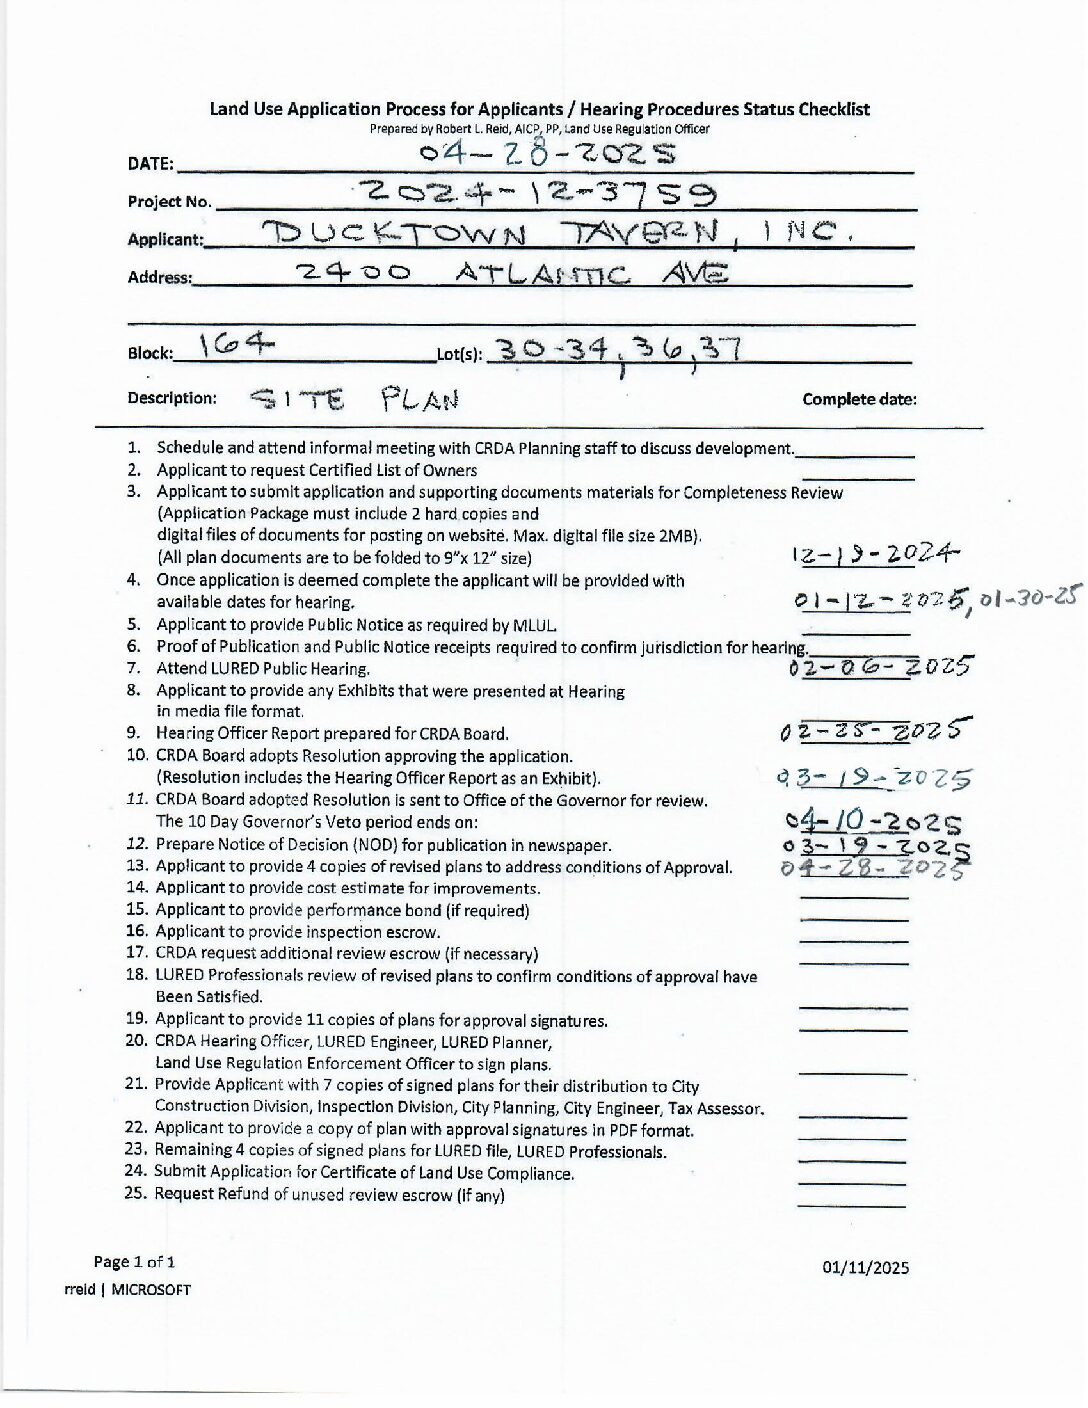 Land Use Application Process for Applicants / Hearing Procedures Status Checklist
Prepared by Robert L. Reid, AICP, PP, Land Use Regulation Officer
DATE: 04-28-2025
Project No. 2024-12-3759
Applicant: DUCKTOWN TAVERN, INC.
Address: 2400 ATLANTIC AVE
Block: 164 Lot(s): 30-34, 36, 37
Description: SITE PLAN Complete date:
1. Schedule and attend informal meeting with CRDA Planning staff to discuss development.
2. Applicant to request Certified List of Owners
3. Applicant to submit application and supporting documents materials for Completeness Review
(Application Package must include 2 hard copies and
digital files of documents for posting on website. Max. digital file size 2MB).
(All plan documents are to be folded to 9"x 12" size) 12-19-2024
4. Once application is deemed complete the applicant will be provided with
available dates for hearing. 01-12-2025, 01-30-25
5. Applicant to provide Public Notice as required by MLUL
6. Proof of Publication and Public Notice receipts required to confirm jurisdiction for hearing.
7. Attend LURED Public Hearing. 02-06-2025
8. Applicant to provide any Exhibits that were presented at Hearing
in media file format.
9. Hearing Officer Report prepared for CRDA Board. 02-25-2025
10. CRDA Board adopts Resolution approving the application.
(Resolution includes the Hearing Officer Report as an Exhibit). 03-19-2025
11. CRDA Board adopted Resolution is sent to Office of the Governor for review.
The 10 Day Governor's Veto period ends on: 04-10-2025
12. Prepare Notice of Decision (NOD) for publication in newspaper. 03-19-2025
13. Applicant to provide 4 copies of revised plans to address conditions of Approval. 04-28-2025
14. Applicant to provide cost estimate for improvements.
15. Applicant to provide performance bond (if required)
16. Applicant to provide inspection escrow.
17. CRDA request additional review escrow (if necessary)
18. LURED Professionals review of revised plans to confirm conditions of approval have
Been Satisfied.
19. Applicant to provide 11 copies of plans for approval signatures.
20. CRDA Hearing Officer, LURED Engineer, LURED Planner,
Land Use Regulation Enforcement Officer to sign plans.
21. Provide Applicant with 7 copies of signed plans for their distribution to City
Construction Division, Inspection Division, City Planning, City Engineer, Tax Assessor.
22. Applicant to provide a copy of plan with approval signatures in PDF format.
23. Remaining 4 copies of signed plans for LURED file, LURED Professionals.
24. Submit Application for Certificate of Land Use Compliance.
25. Request Refund of unused review escrow (if any)
Page 1 of 1
01/11/2025
rreid | MICROSOFT